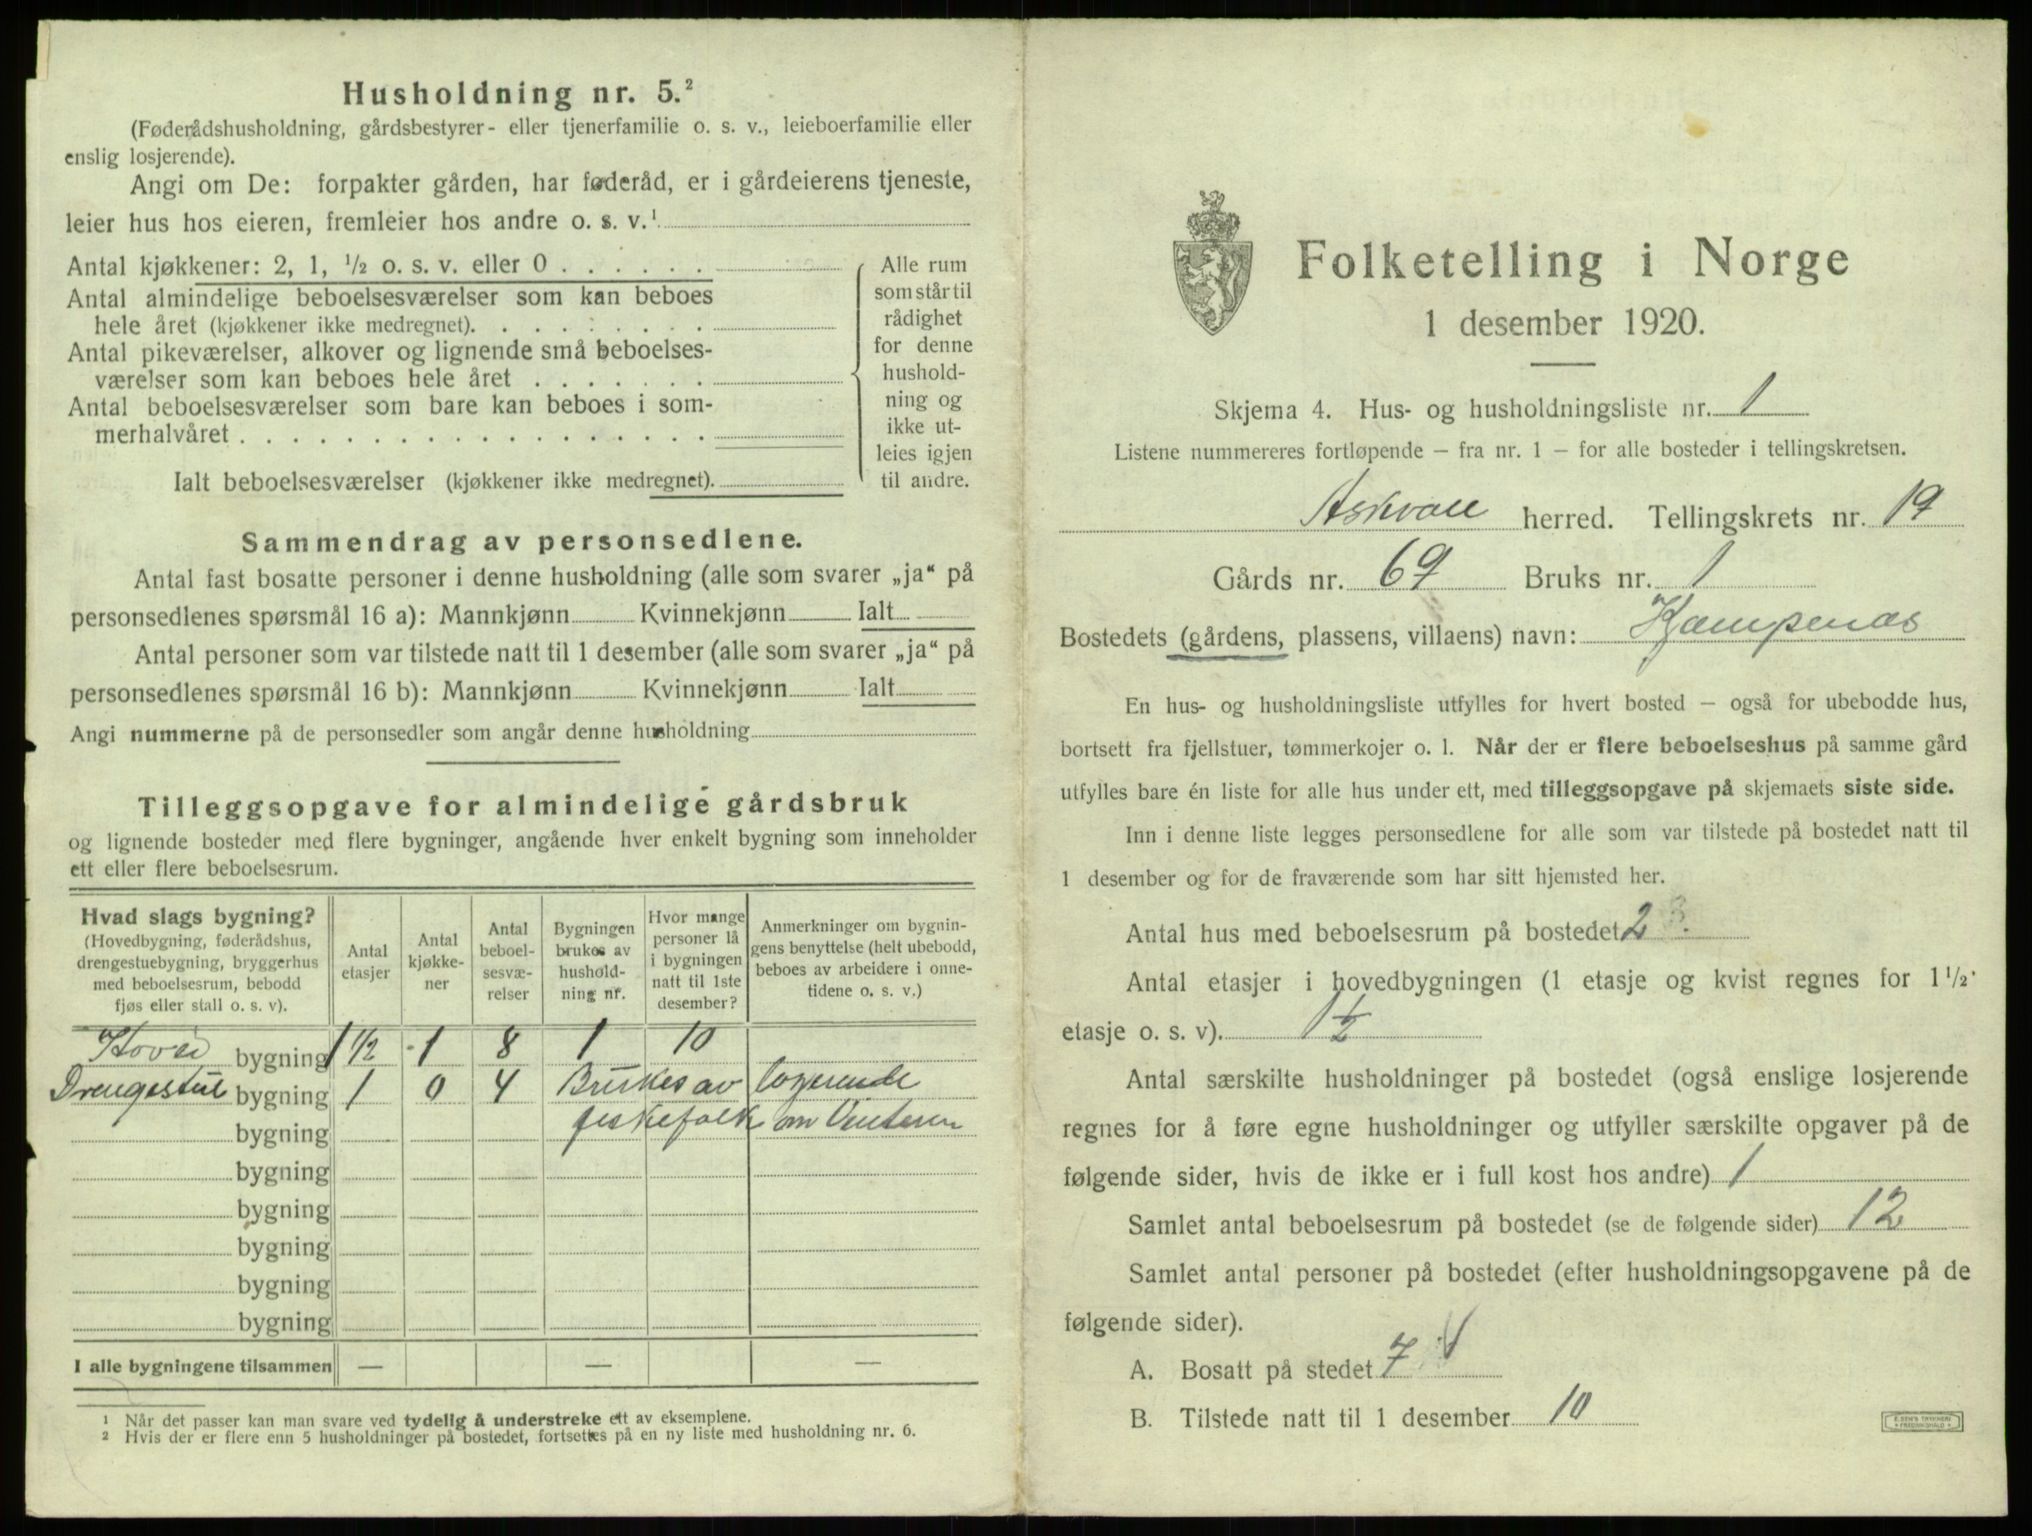 Husholdning nr. 5.²
(Føderådshusholdning, gårdsbestyrer- eller tjenerfamilie o. s. v., leieboerfamilie eller
enslig losjerende).
Angi om De: forpakter gården, har føderåd, er i gårdeierens tjeneste,
leier hus hos eieren, fremleier hos andre o. s. v.¹
Antal kjøkkener: 2, 1, ½ o. s. v. eller 0 . . . . . .
Antal almindelige beboelsesværelser som kan beboes
hele året (kjøkkener ikke medregnet). . . . . . . . .
Antal pikeværelser, alkover og lignende små beboelses-
værelser som kan beboes hele året . . . . . . .
Antal beboelsesværelser som bare kan beboes i som-
merhalvåret . . . . . . . . . . . . . . . . . .
Ialt beboelsesværelser (kjøkkener ikke medregnet).
Alle rum
som står til
rådighet
for denne
hushold-
ning og
ikke ut-
leies igjen
til andre.
Sammendrag av personsedlene.
Antal fast bosatte personer i denne husholdning (alle som svarer „ja“ på
personsedlenes spørsmål 16 a): Mannkjønn Kvinnekjønn Ialt
Antal personer som var tilstede natt til 1 desember (alle som svarer „ja“ på
personsedlenes spørsmål 16 b): Mannkjønn Kvinnekjønn Ialt
Angi nummerne på de personsedler som angår denne husholdning
Tilleggsopgave for almindelige gårdsbruk
og lignende bosteder med flere bygninger, angående hver enkelt bygning som inneholder
ett eller flere beboelsesrum.
Hvad slags bygning?
(Hovedbygning, føderådshus,
drengestuebygning, bryggerhus
med beboelsesrum, bebodd
fjøs eller stall o. s. v).
Antal
etasjer
Antal
kjøkke-
ner
Antal
beboel-
sesvæ-
relser
Bygningen
brukes av
hushold-
ning nr.
Hvor mange
personer lå
i bygningen
natt til 1ste
desember?
Anmerkninger om bygnin-
gens benyttelse (helt ubebodd,
beboes av arbeidere i onne-
tidene o. s. v.)
Hoved bygning 1 ½ 1 8 1 10
Drengestue bygning 1 0 4 Brukes av logerende
bygning fiskefolk om Vinteren
bygning
bygning
bygning
bygning
bygning
I alle bygningene tilsammen — — —
¹ Når det passer kan man svare ved tydelig å understreke ett av eksemplene.
² Hvis der er flere enn 5 husholdninger på bostedet, fortsettes på en ny liste med husholdning nr. 6.
Folketelling i Norge
1 desember 1920.
Skjema 4. Hus- og husholdningsliste nr. 1
Listene nummereres fortløpende – fra nr. 1 – for alle bosteder i tellingskretsen.
Askvoll herred. Tellingskrets nr. 19
Gårds nr. 69 Bruks nr. 1
Bostedets (gårdens, plassens, villaens) navn: Kampenæs
En hus- og husholdningsliste utfylles for hvert bosted – også for ubebodde hus,
bortsett fra fjellstuer, tømmerkojer o. l. Når der er flere beboelseshus på samme gård
utfylles bare én liste for alle hus under ett, med tilleggsopgave på skjemaets siste side.
Inn i denne liste legges personsedlene for alle som var tilstede på bostedet natt til
1 desember og for de fraværende som har sitt hjemsted her.
Antal hus med beboelsesrum på bostedet 2
Antal etasjer i hovedbygningen (1 etasje og kvist regnes for 1½
etasje o. s. v). 1½
Antal særskilte husholdninger på bostedet (også enslige losjerende
regnes for å føre egne husholdninger og utfyller særskilte opgaver på de
følgende sider, hvis de ikke er i full kost hos andre) 1
Samlet antal beboelsesrum på bostedet (se de følgende sider) 12
Samlet antal personer på bostedet (efter husholdningsopgavene på de
følgende sider).
A. Bosatt på stedet 7
B. Tilstede natt til 1 desember 10